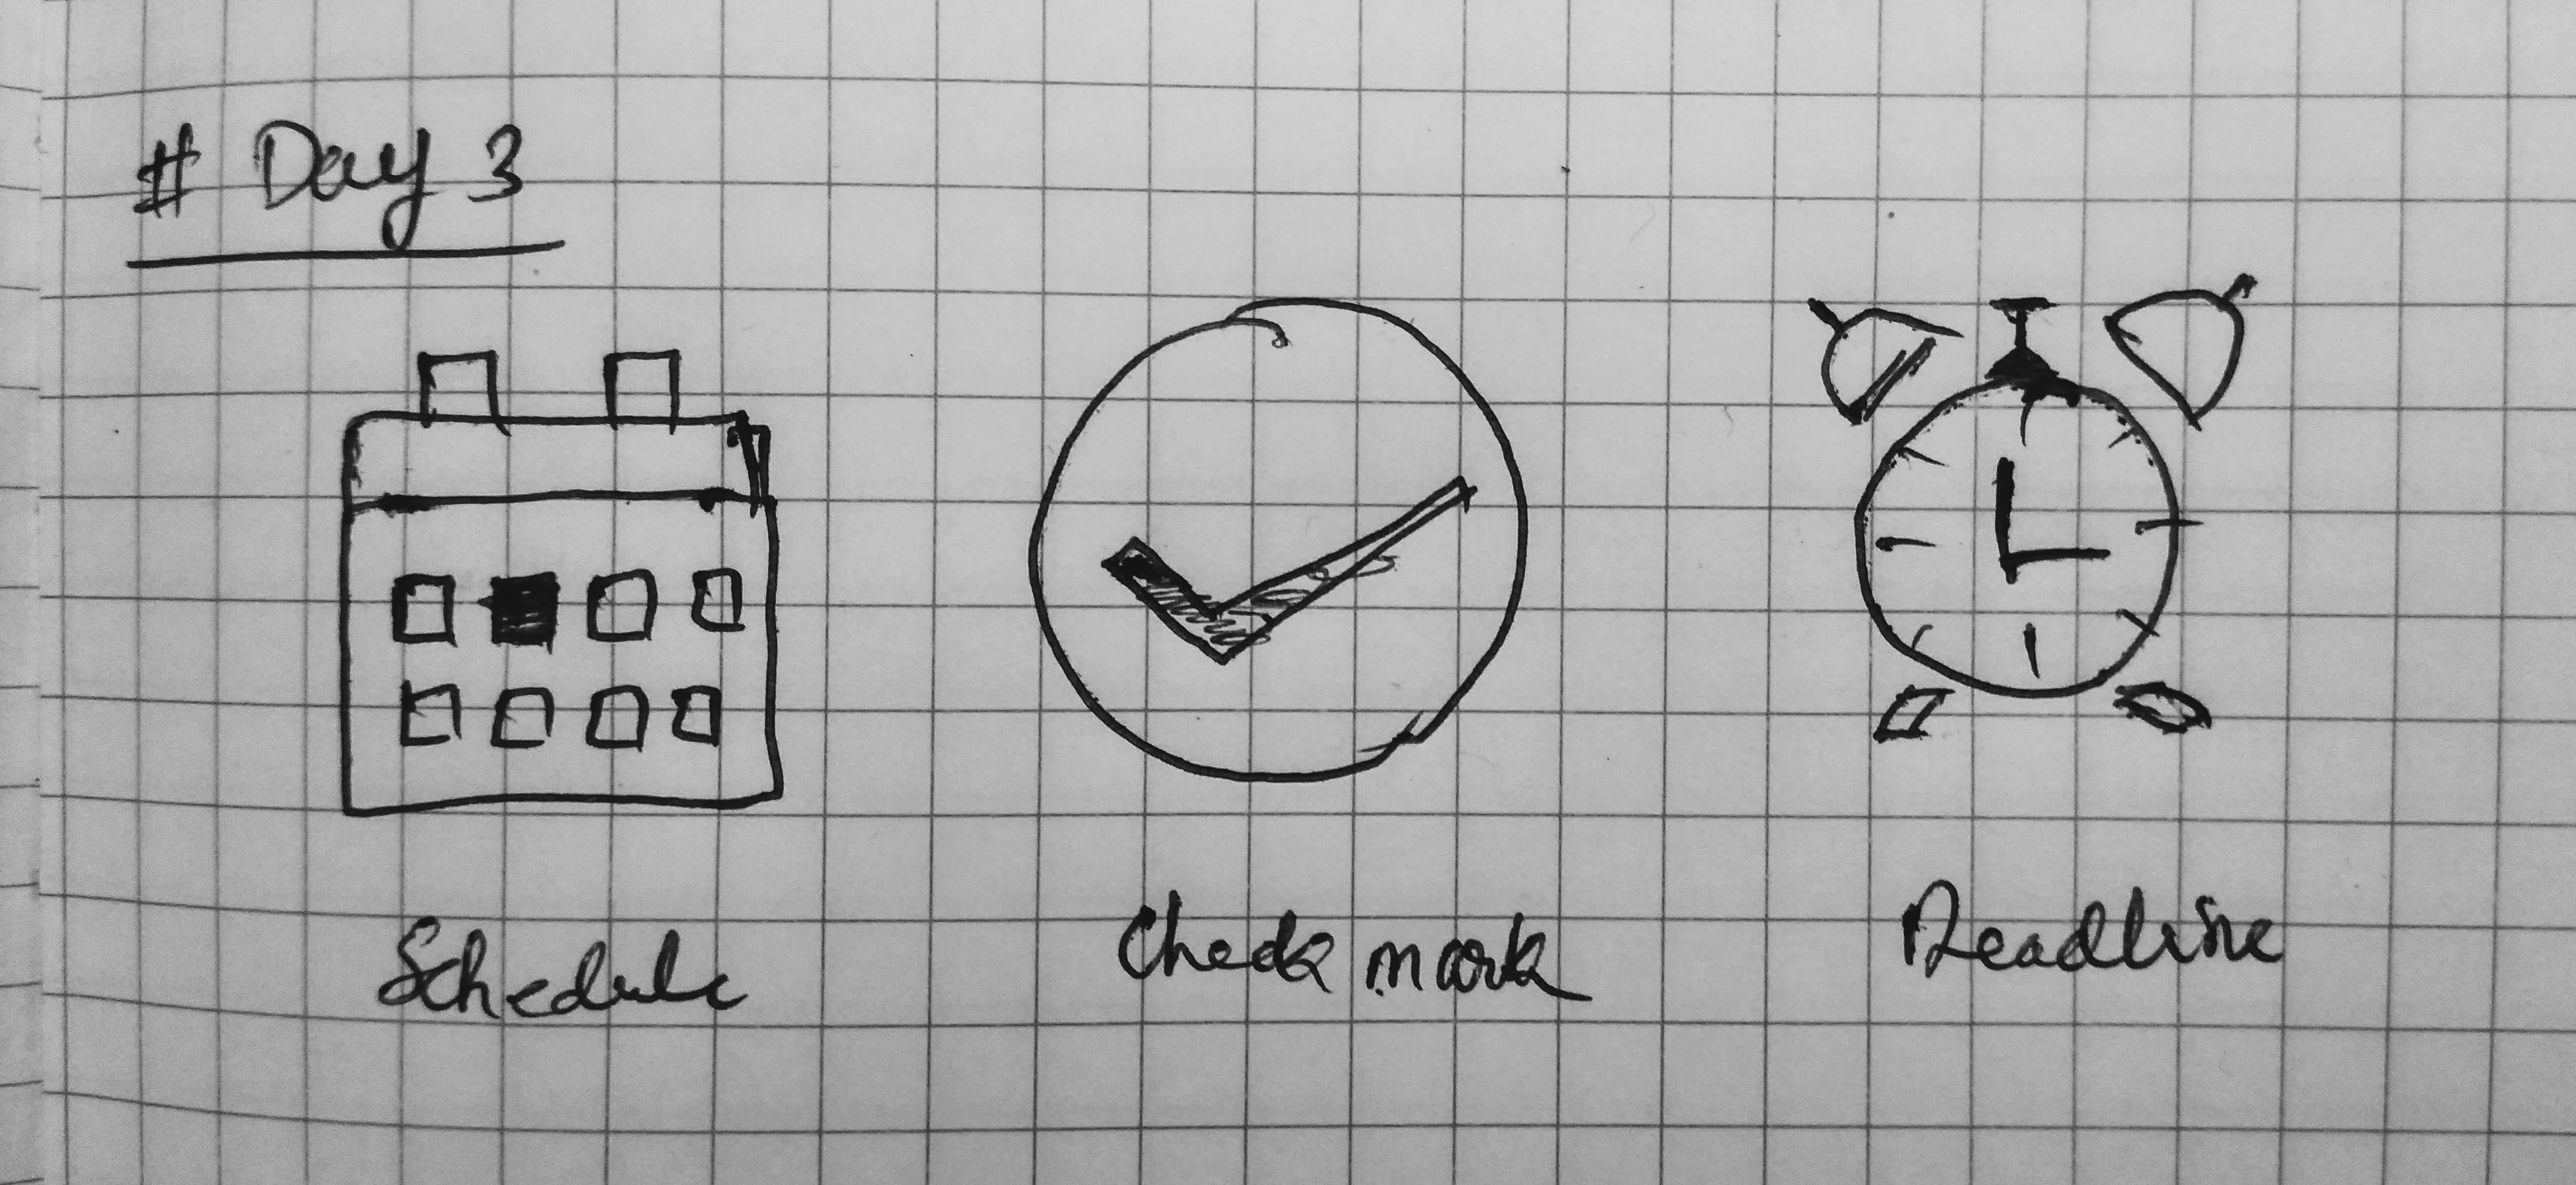 # Day 3
Schedule
Check mark
Deadline